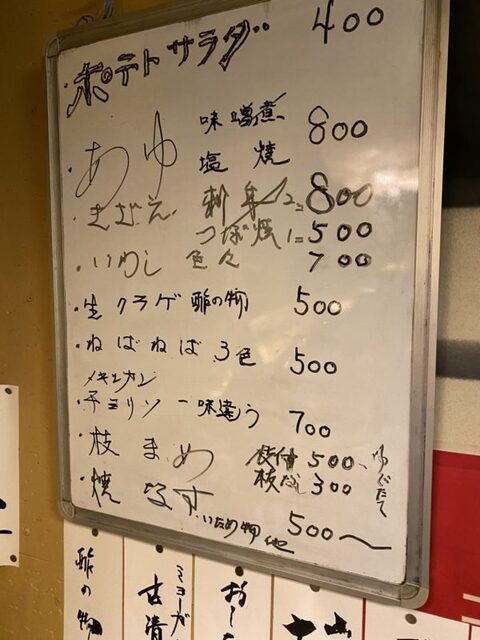 ・ポテトサラダ 400
・あゆ 味噌煮 800
塩焼
・さざえ 刺身 2コ 800
つぼ焼 1コ 500
・いわし 色々 700
・生クラゲ酢の物 500
・ねばねば3色 500
メキシカン
・チョリソー 一味違う 700
・枝まめ 枝付 500 ゆでたて
枝なし 300
・焼なす、いため物他 500〜
酢の物
ミョーガ